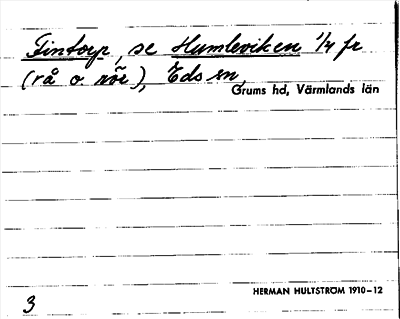 Fintorp, se Humleviken 1/4 fr
(rå o. rör), Eds sn,
Grums hd, Värmlands län
HERMAN HULTSTRÖM 1910–12
3